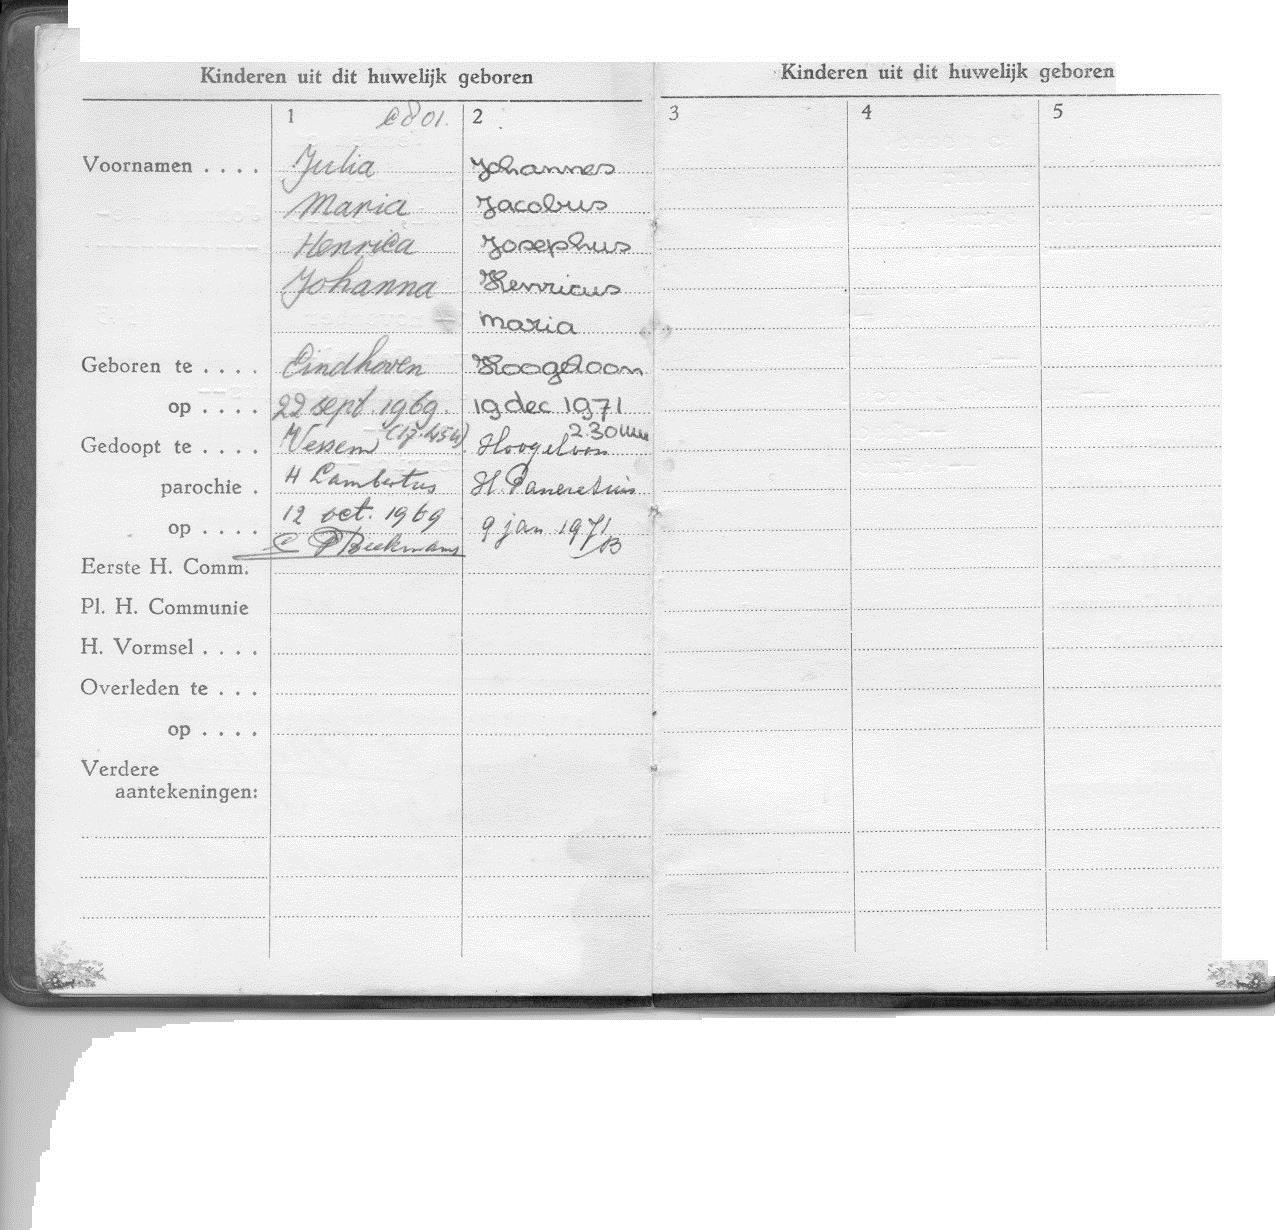 Kinderen uit dit huwelijk geboren
Kinderen uit dit huwelijk geboren
1 2 3 4 5
Voornamen . . . . Julia Johannes
Maria Jacobus
Henrica Josephus
Johanna Henricus
maria
Geboren te . . . . Eindhoven Hoogeloon
op . . . . 22 sept. 1969. 19 dec 1971
2.30 uur
Gedoopt te . . . . Vessem Hoogeloon
parochie . H Lambertus H. Pancratius
op . . . . 12 oct. 1969 9 jan 1971
Eerste H. Comm.
Pl. H. Communie
H. Vormsel . . . .
Overleden te . . .
op . . . .
Verdere
aantekeningen: